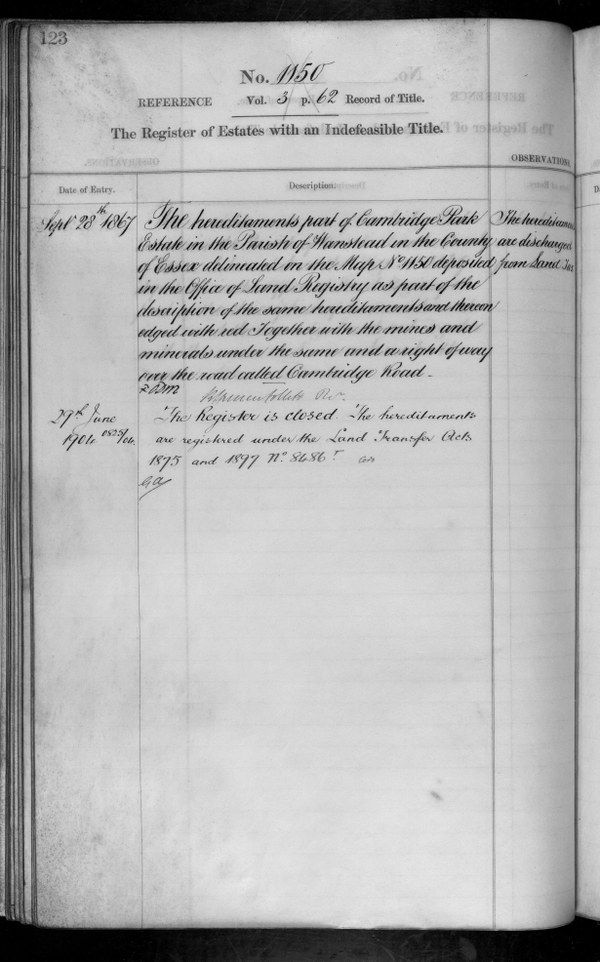 123
No. 1150
REFERENCE Vol. 3 p. 62 Record of Title.
The Register of Estates with an Indefeasible Title.
OBSERVATIONS.
Date of Entry.
Description.
Sept 28th 1867
The hereditaments part of Cambridge Park
Estate in the Parish of Wanstead in the County
of Essex delineated on the Map No 1150 deposited
in the Office of Land Registry as part of the
description of the same hereditaments and thereon
edged with red Together with the mines and
minerals under the same and a right of way
over the road called Cambridge Road.
The hereditaments
are discharged
from Land Tax
29th June
1904 0835/04.
The Register is closed. The hereditaments
are registered under the Land Transfer Acts
1875 and 1897 No. 8486 T